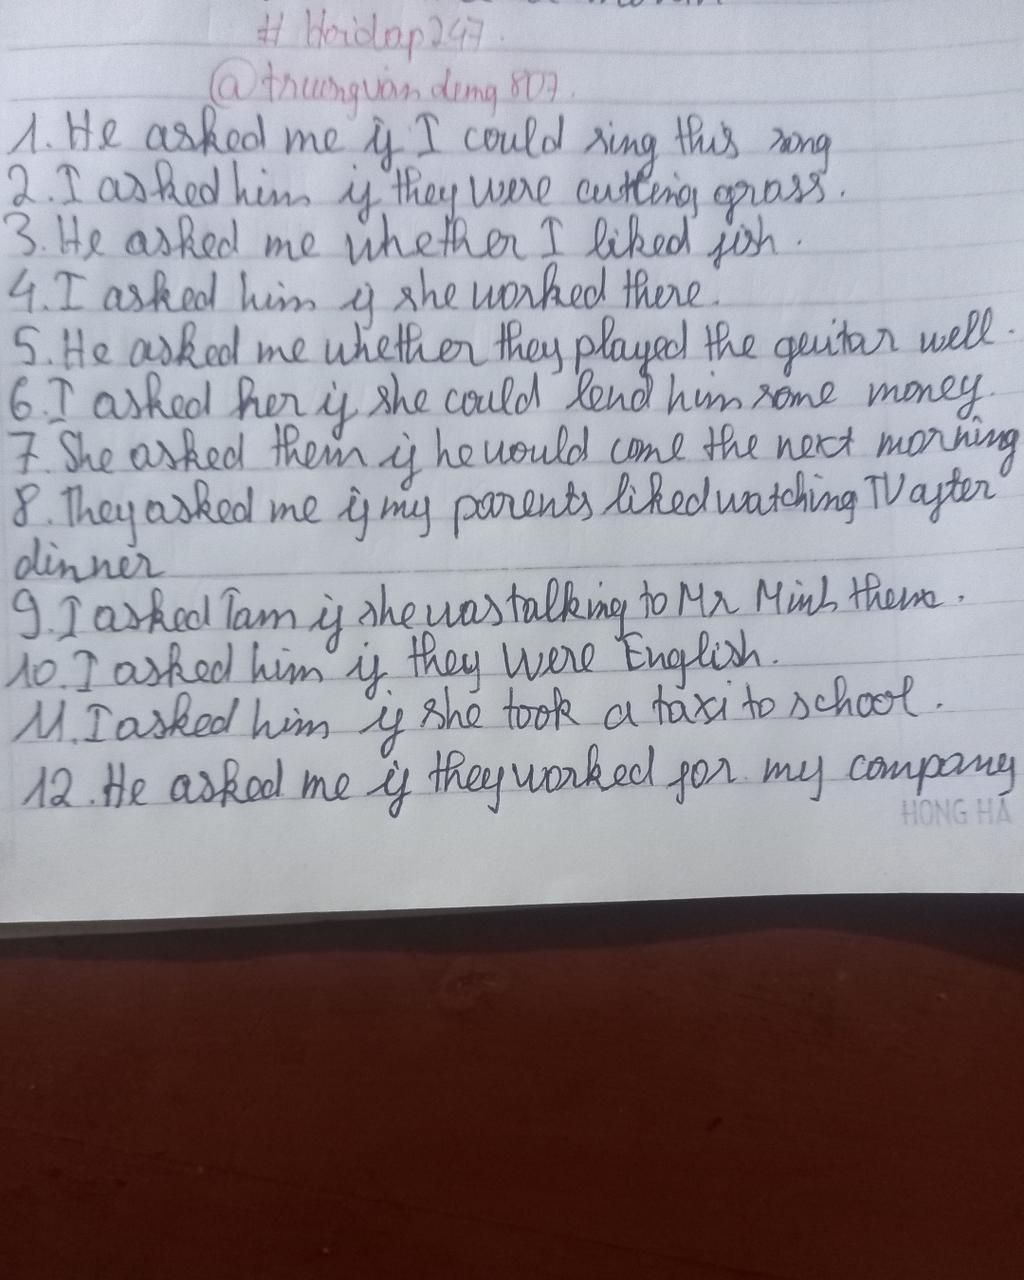 # Hoidap247.
@truongvandung807.
1. He asked me if I could sing this song
2. I asked him if they were cutting grass.
3. He asked me whether I liked fish.
4. I asked him if she worked there.
5. He asked me whether they played the geuitar well.
6. I asked her if she could lend him some money.
7. She asked them if he would come the next morning
8. They asked me if my parents liked watching TV after
dinner
9. I asked Tam if she was talking to Mr Minh then.
10. I asked him if they were English.
11. I asked him if she took a taxi to school.
12. He asked me if they worked for my company
HONG HA